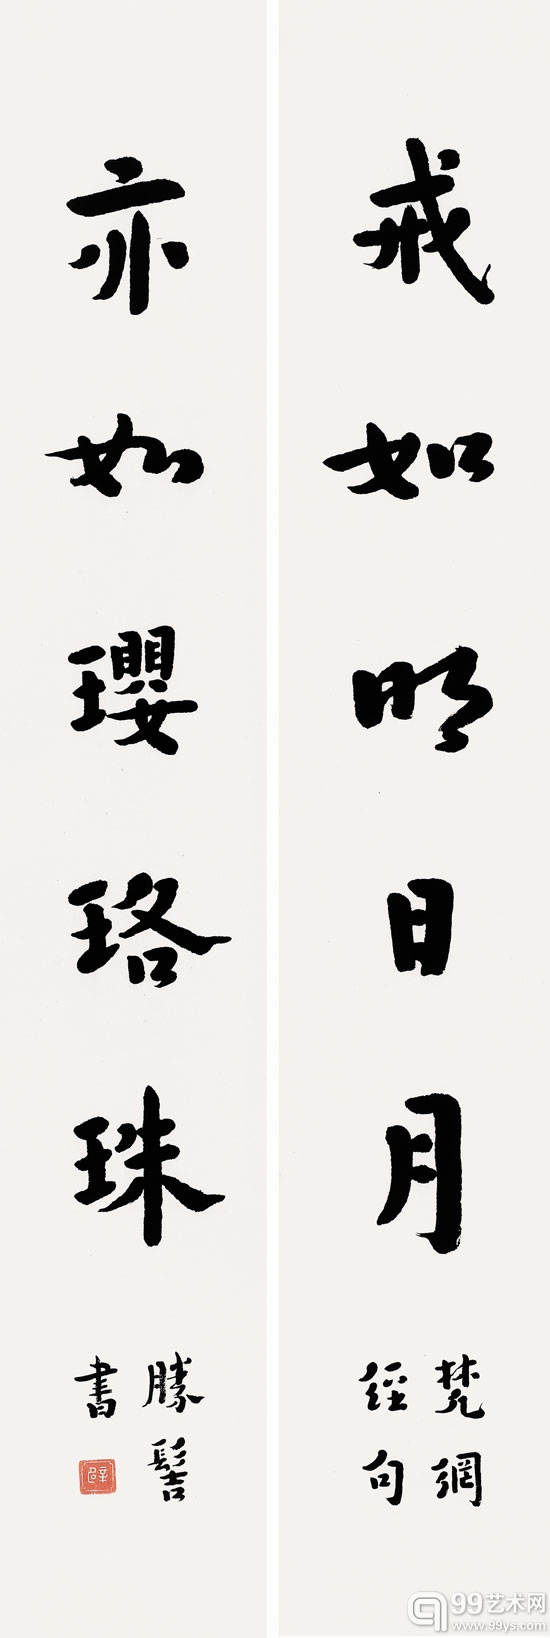 戒如明日月
梵網
經句
亦如瓔珞珠
勝髻
書
99艺术网
www.99ys.com